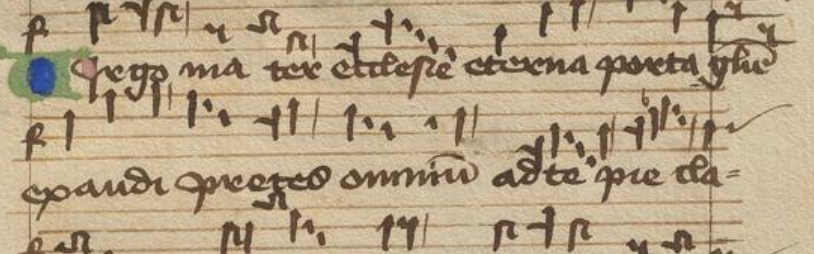 Virgo ma ter ecclesiē eterna porta gl̄ie
exaudi preces omniū ad te pie cla=